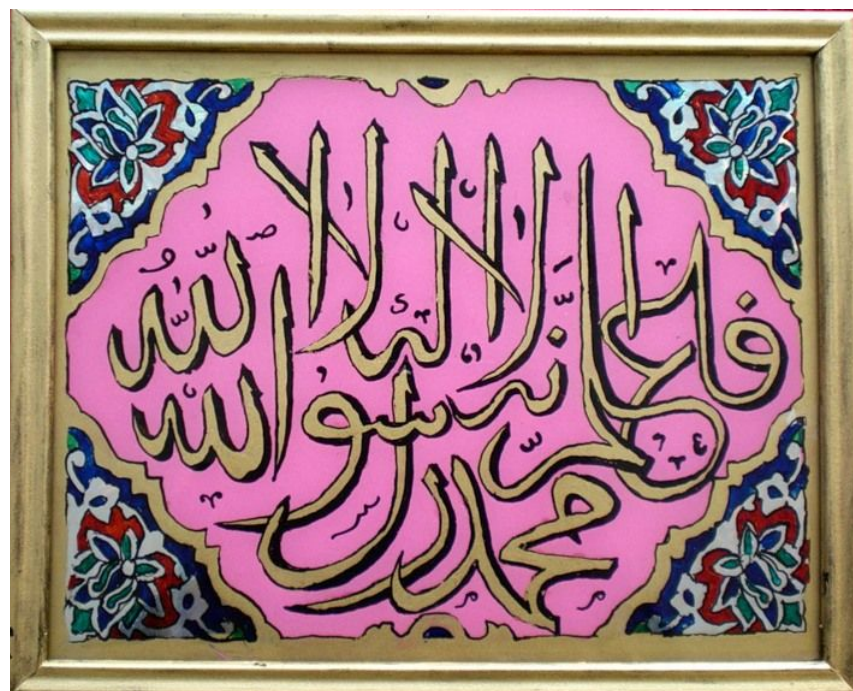 فاعلم أنّه لا إله إلا الله
محمد رسول الله